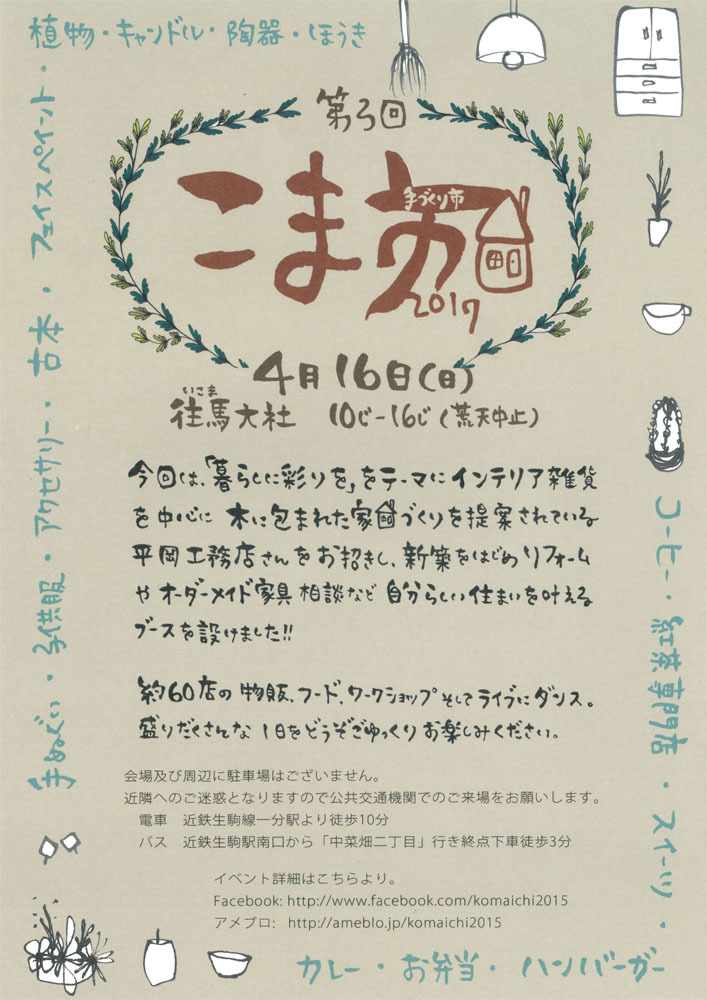 植物・キャンドル・陶器・ほうき
手ぬぐい・子供服・アクセサリー・古本・フェイスペイント・
第3回
こま市
手づくり市
2017
4月16日(日)
いこま
往馬大社 10じ-16じ(荒天中止)
今回は、「暮らしに彩りを」をテーマにインテリア雑貨
を中心に 木に包まれた家づくりを提案されている
平岡工務店さんをお招きし、新築をはじめリフォーム
やオーダーメイド家具相談など 自分らしい住まいを叶える
ブースを設けました!!
約60店の物販、フード、ワークショップそしてライブにダンス。
盛りだくさんな 1日をどうぞごゆっくりお楽しみください。
会場及び周辺に駐車場はございません。
近隣へのご迷惑となりますので公共交通機関でのご来場をお願いします。
電車 近鉄生駒線一分駅より徒歩10分
バス 近鉄生駒駅南口から「中菜畑二丁目」行き終点下車徒歩3分
イベント詳細はこちらより。
Facebook: http://www.facebook.com/komaichi2015
アメブロ: http://ameblo.jp/komaichi2015
コーヒー・紅茶専門店・スイーツ・
カレー・お弁当・ハンバーガー